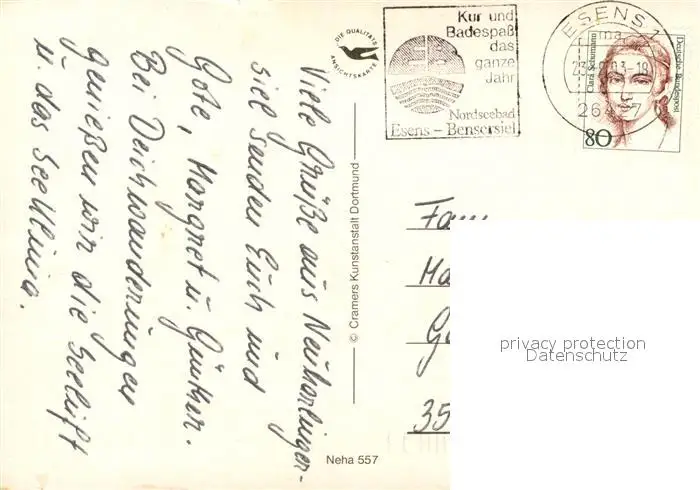 Viele Grüße aus Neuharlinger-
siel senden Euch und
Gote, Margret u. Günther.
Bei Deichwanderungen
genießen wir die Seeluft
u. das Seeklima.
DIE QUALITÄTS
ANSICHTSKARTE
© Cramers Kunstanstalt Dortmund
Neha 557
Kur und
Badespaß
das
ganze
Jahr
Nordseebad
Esens – Bensersiel
ESENS 1
ma
Clara Schumann
Deutsche Bundespost
80
Fam
Ma
35
privacy protection
Datenschutz